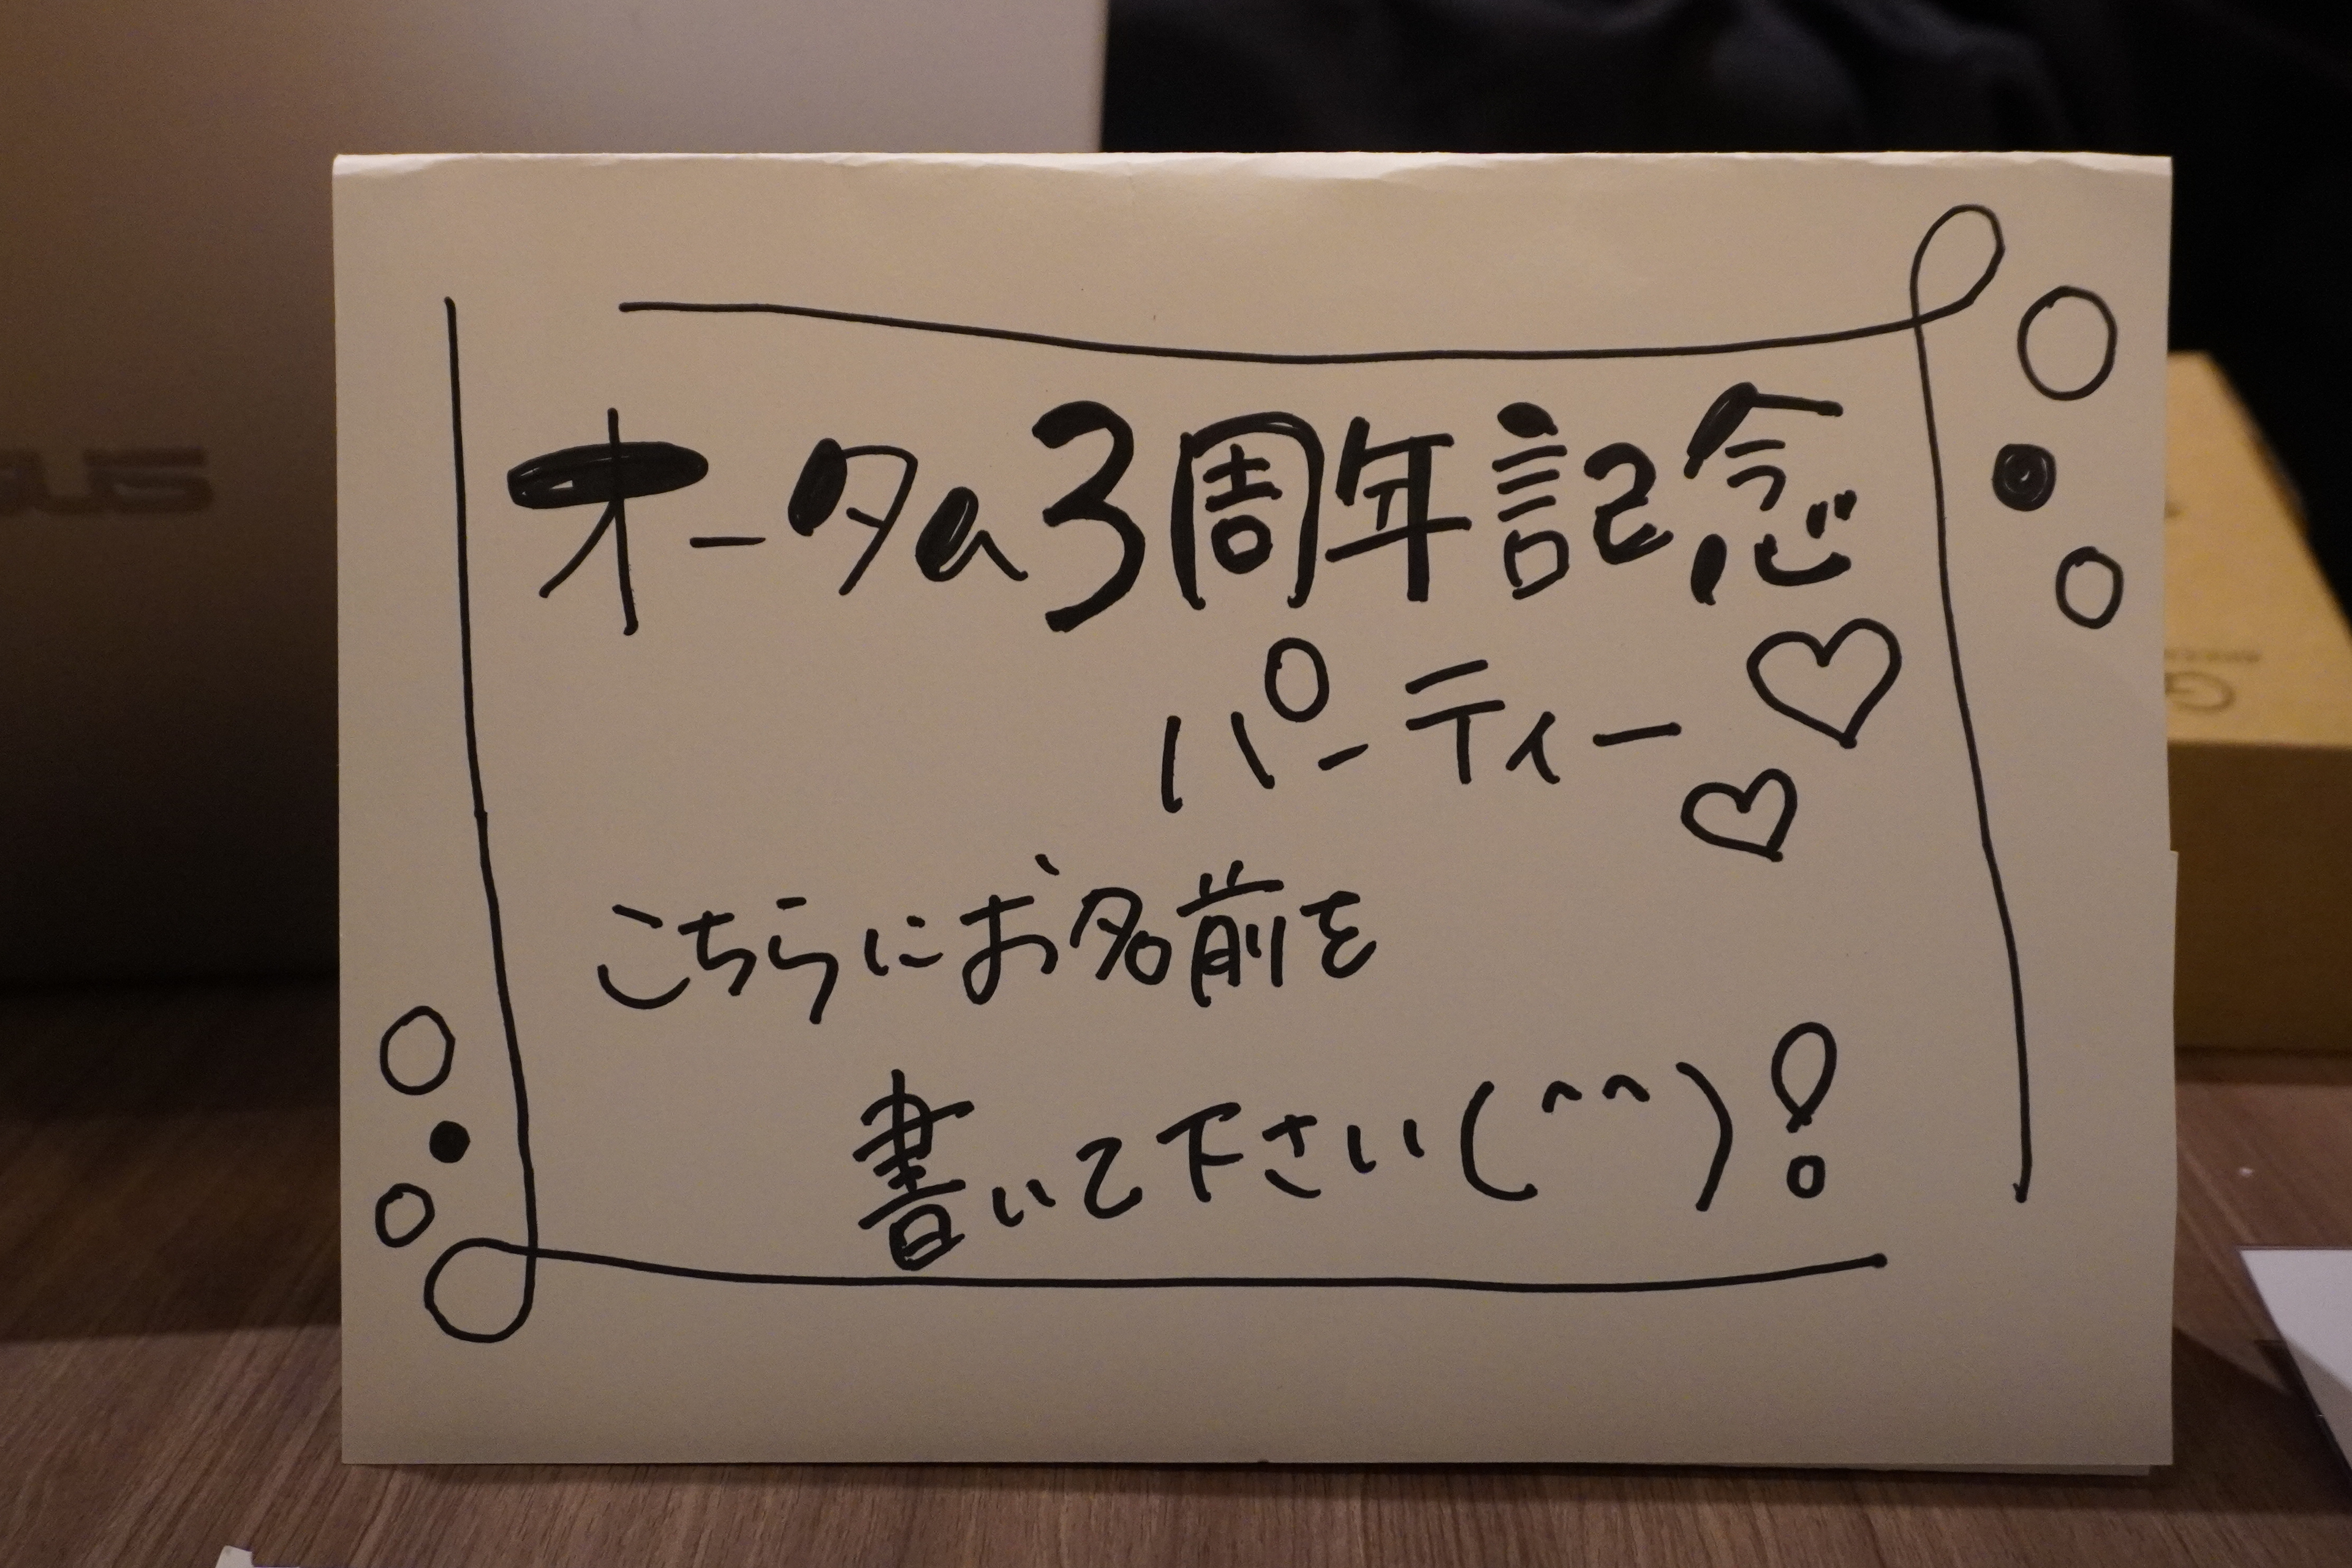 オータa3周年記念
パーティー♡
♡
こちらにお名前を
書いて下さい(^^)!